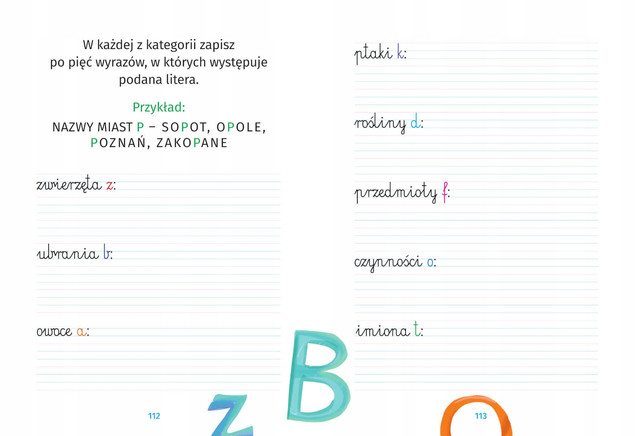 W każdej z kategorii zapisz
po pięć wyrazów, w których występuje
podana litera.
Przykład:
NAZWY MIAST P – SOPOT, OPOLE,
POZNAŃ, ZAKOPANE
zwierzęta z:
ubrania b:
owoce a:
112
Z
B
ptaki k:
rośliny d:
przedmioty f:
czynności o:
imiona t:
113
O